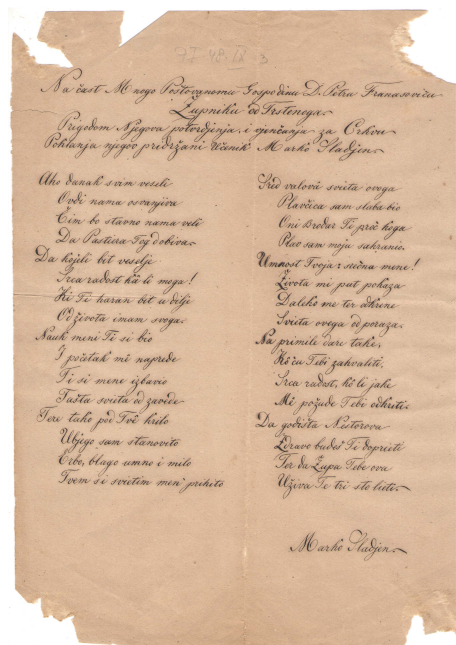 Na čast Mnogo Poštovanomu Gospodinu D. Petru Franasoviću
Župniku od Trstenoga
Prigodom Njegova potvrdjenja i vjenčanja za Crkvu
Poklanja njegov pridržani Učenik Marko Sladjen
Ako danak svim veseli
Ovdi nama osvanjiva
Čim bo stavno nama veli
Da Pastiera Toj dobiva.
Da kojeli bit veselje
Srca radost kâ li moga!
Ki Ti haran bit u dilje
Od života imam svoga.
Nauk meni Ti si bio
I početak mê naprede
Ti si mene izbavio
Tašta svieta od zavide
Tere tako pod Tvê krilo
Ubjego sam stanovito
Erbo, blago umno i milo
Tvem si svietim men' prikito
Sried valovâ svieta ovoga
Plavčica sam slaba bio
Oni Brodar Ti proč koga
Plav sam moju sahranio.
Umnost Tvoja srićna mene!
Života mi put pokaza
Daleko me ter odkrene
Svieta ovega od poraza.
Na primile dare take,
Kô ću Tebi zahvaliti,
Srca radost, kô li jake
Mê požude Tebi odkriti.
Da godišta Nestorova
Zdravo budeš Ti doprieti
Ter da Župa Tebe ova
Uživa Te tri sto lieti.
Marko Sladjen